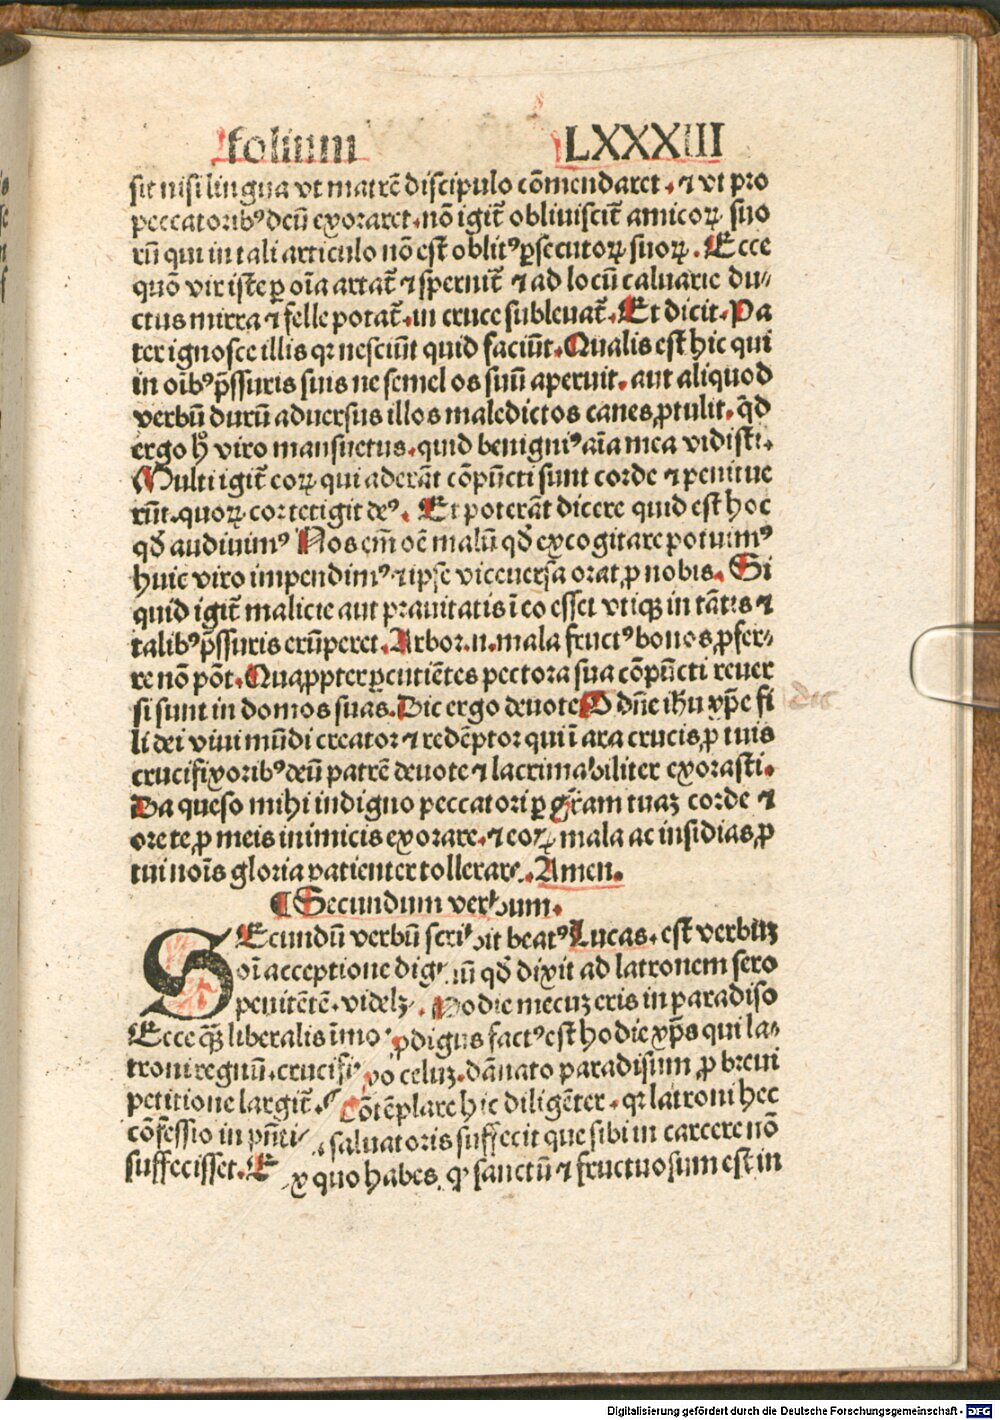 folium LXXXIIII
sit nisi lingua vt matrē discipulo cōmendaret . ⁊ vt pro
peccatoribꝰ deū exoraret . nō igit̄ obliuiscit̄ amicoꝝ suo
rū qui in tali articulo nō est oblitꝰ ꝑsecutoꝝ suoꝝ . Ecce
quō vir iste ꝑ oīa artat̄ ⁊ spernit̄ ⁊ ad locū caluarie du⸗
ctus mirra ⁊ felle potat̄ . in cruce subleuat̄ . Et dicit . Pa
ter ignosce illis qꝛ nesciūt quid faciūt . Qualis est hic qui
in oībꝰ p̄ssuris suis ne semel os suū aperuit . aut aliquod
verbū durū aduersus illos maledictos canes ꝓtulit . q̄d
ergo h̄ viro mansuetus . quid benigniꝰ aīa mea vidisti .
Multi igit̄ eoꝝ qui aderāt cōpūcti sunt corde ⁊ penitue
rūt . quoꝝ cor tetigit deꝰ . Et poterāt dicere quid est hoc
qd̄ audiuimꝰ Nos em̄ oē malū qd̄ excogitare potuimꝰ
huic viro impendimꝰ ⁊ ipse viceuersa orat ꝓ nobis . Si
quid igit̄ malicie aut prauitatis ī eo esset vtiqꝫ in tātis ⁊
talibꝰ p̄ssuris erūperet . Arbor .n. mala fructꝰ bonos ꝓfer⸗
re nō pōt . Quapropter ꝑcutiētes pectora sua cōpūcti reuer
si sunt in domos suas . Dic ergo deuote O dn̄e ih̄u xp̄e fi
li dei viui mūdi creator ⁊ redēptor qui ī ara crucis ꝓ tuis
crucifixoribꝰ deū patrē deuote ⁊ lacrimabiliter exorasti .
Da queso mihi indigno peccatori ꝑ gr̄am tuaꝫ corde ⁊
ore te ꝓ meis inimicis exorare . ⁊ eoꝝ mala ac insidias ꝓ
tui noīs gloria patienter tollerare . Amen .
¶ Secundum verbum .
SEcundū verbū scribit beatꝰ Lucas . est verbuꝫ
oī acceptione dignū qd̄ dixit ad latronem sero
penitētē . videlꝫ . Hodie mecuꝫ eris in paradiso
Ecce qꝫ̄ liberalis īmo ꝓdigus factꝰ est hodie xp̄s qui la⸗
troni regnū . crucifixo celuꝫ . dānato paradisum ꝓ breui
petitione largit̄ . Cōtēplare hic diligēter . qꝛ latroni hec
cōfessio in pn̄tia saluatoris suffecit que sibi in carcere nō
suffecisset . Ex quo habes . ꝙ sanctū ⁊ fructuosum est in
Digitalisierung gefördert durch die Deutsche Forschungsgemeinschaft - DFG